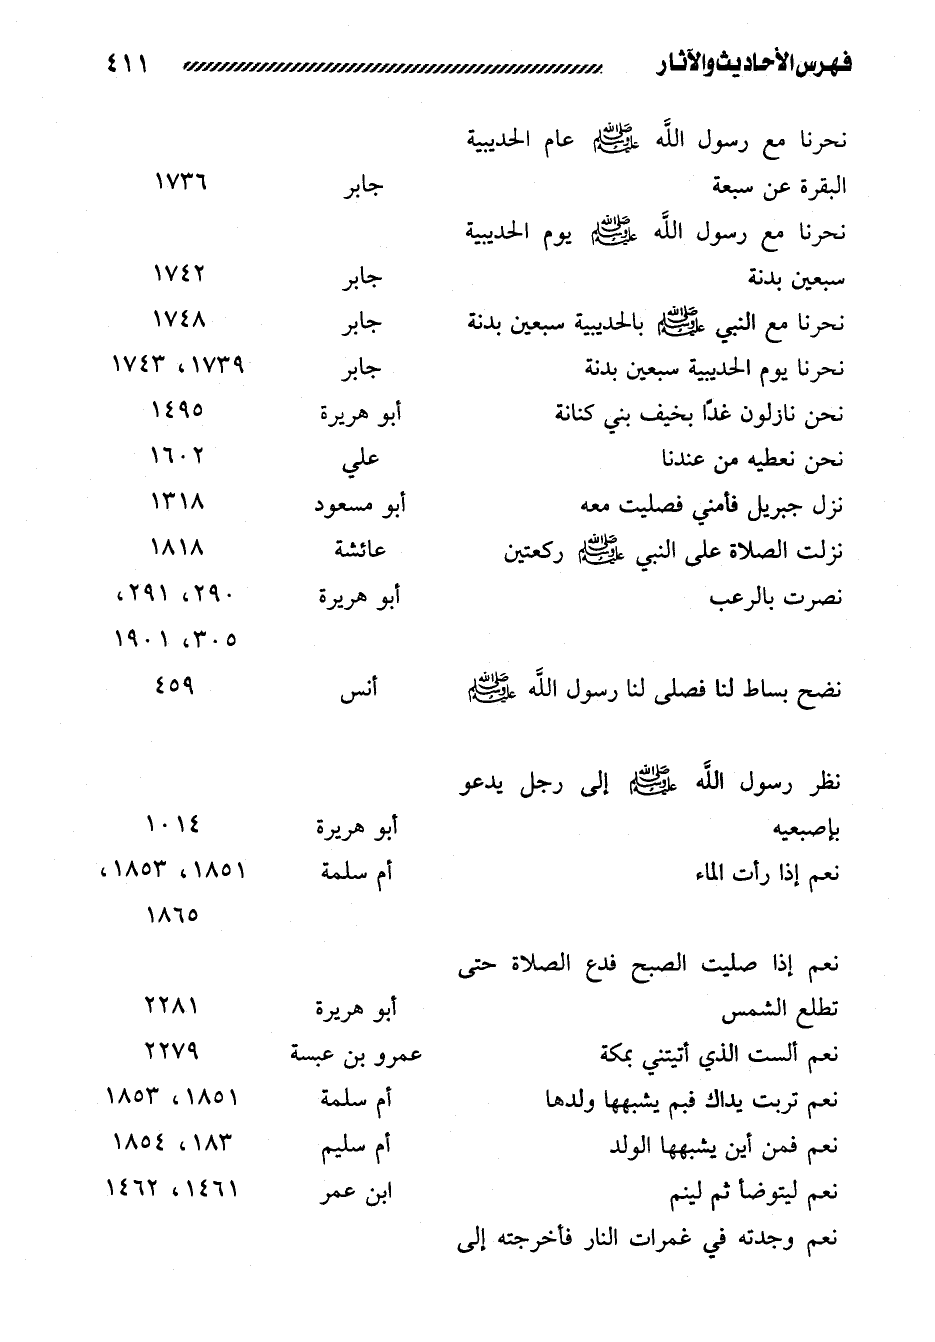 فهرس الأحاديث والآثار ٤١١
نحرنا مع رسول اللَّه ﷺ عام الحديبية
البقرة عن سبعة جابر ١٧٣٦
نحرنا مع رسول اللَّه ﷺ يوم الحديبية
سبعين بدنة جابر ١٧٤٢
نحرنا مع النبي ﷺ بالحديبية سبعين بدنة جابر ١٧٤٨
نحرنا يوم الحديبية سبعين بدنة جابر ١٧٣٩، ١٧٤٣
نحن نازلون غدًا بخيف بني كنانة أبو هريرة ١٤٩٥
نحن نعطيه من عندنا علي ١٦٠٢
نزل جبريل فأمني فصليت معه أبو مسعود ١٣١٨
نزلت الصلاة على النبي ﷺ ركعتين عائشة ١٨١٨
نصرت بالرعب أبو هريرة ٢٩٠، ٢٩١،
٣٠٥، ١٩٠١
نضح بساط لنا فصلى لنا رسول اللَّه ﷺ أنس ٤٥٩
نظر رسول اللَّه ﷺ إلى رجل يدعو
بإصبعيه أبو هريرة ١٠١٤
نعم إذا رأت الماء أم سلمة ١٨٥١، ١٨٥٣،
١٨٦٥
نعم إذا صليت الصبح فدع الصلاة حتى
تطلع الشمس أبو هريرة ٢٢٨١
نعم ألست الذي أتيتني بمكة عمرو بن عبسة ٢٢٧٩
نعم تربت يداك فبم يشبهها ولدها أم سلمة ١٨٥١، ١٨٥٣
نعم فمن أين يشبهها الولد أم سليم ١٨٣، ١٨٥٤
نعم ليتوضأ ثم لينم ابن عمر ١٤٦١، ١٤٦٢
نعم وجدته في غمرات النار فأخرجته إلى